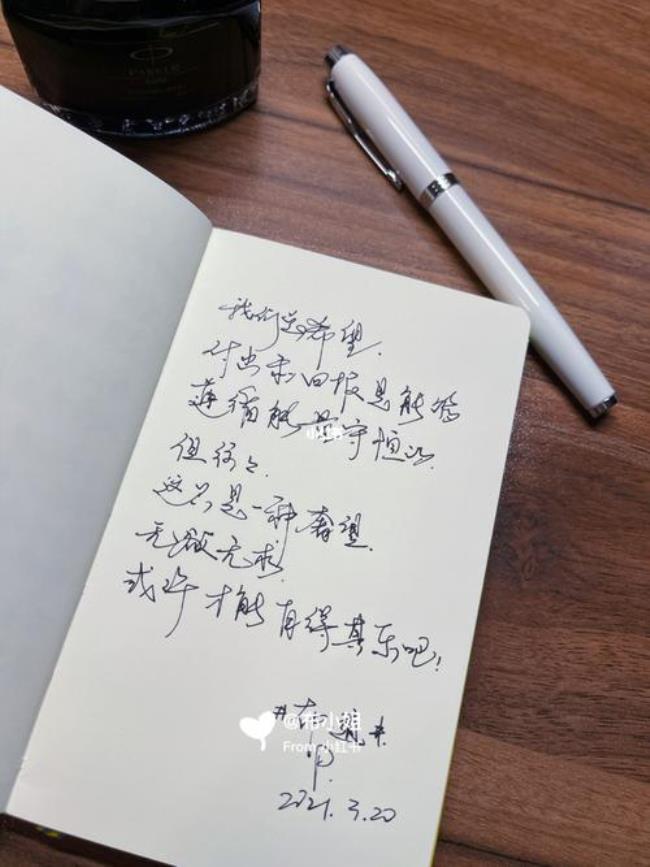 PARKER
我们总希望,
付出和回报是能够
遵循能量守恒的.
但往往,
这只是一种奢望.
无欲无求,
或许才能自得其乐吧!
@布小姐
From 小红书
2021.3.20